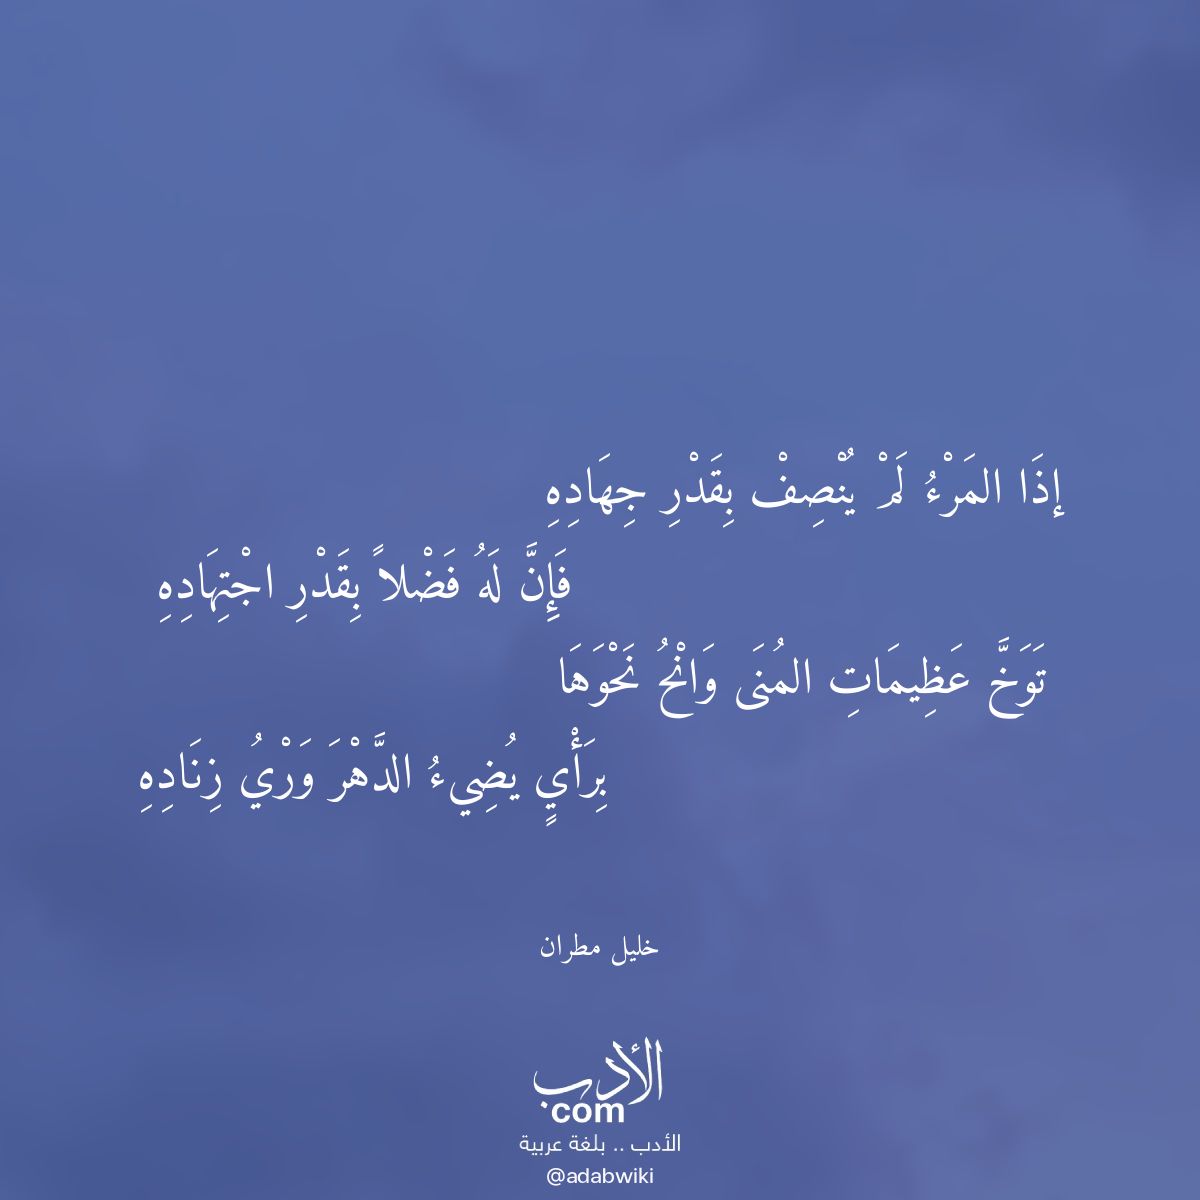 إِذَا المَرْءُ لَمْ يُنْصِفْ بِقَدْرِ جِهَادِهِ
فَإِنَّ لَهُ فَضْلاً بِقَدْرِ اجْتِهَادِهِ
تَوَخَّ عَظِيمَاتِ المُنَى وَانْحُ نَحْوَهَا
بِرَأْيٍ يُضِيءُ الدَّهْرَ وَرْيُ زِنَادِهِ
خليل مطران
الأدب
com
الأدب .. بلغة عربية
@adabwiki